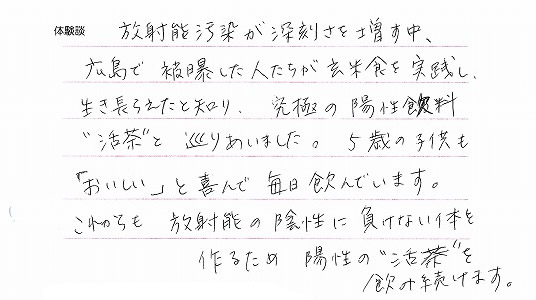 体験談 放射能汚染が深刻さを増す中、
広島で被曝した人たちが玄米食を実践し、
生き長らえたと知り、究極の陽性飲料
"活茶"と巡りあいました。5歳の子供も
「おいしい」と喜んで毎日飲んでいます。
これからも放射能の陰性に負けない体を
作るため陽性の"活茶"を
飲み続けます。